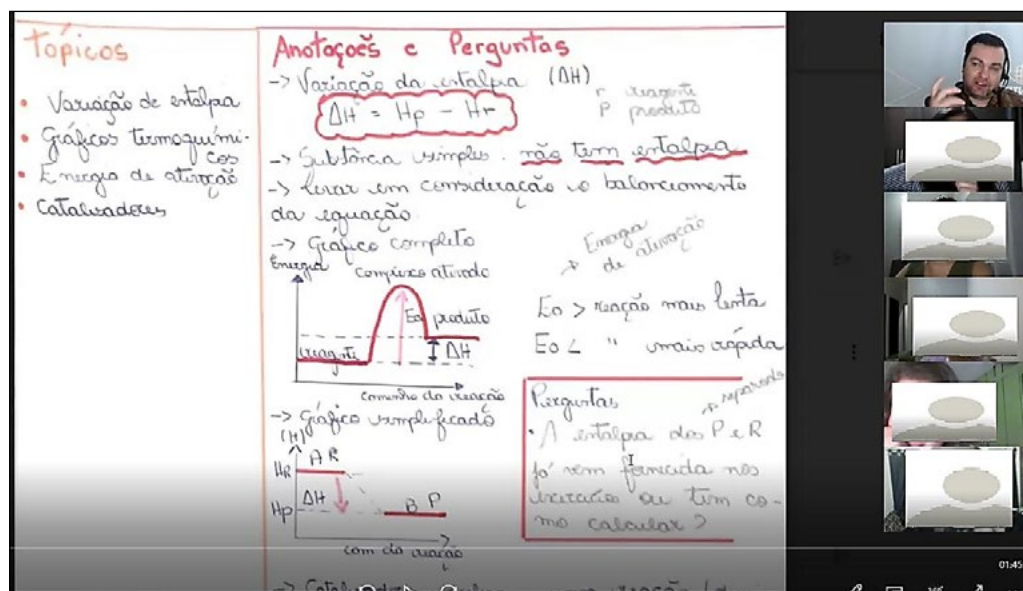 Tópicos
• Variação de entalpia
• Gráficos termoquími-
cos
• Energia de ativação
• Catalisadores
Anotações e Perguntas
-> Variação da entalpia (ΔH)
r reagente
P produto
ΔH = Hp - Hr
-> Subtância simples não tem entalpia
-> levar em consideração o balanceamento
da equação
-> Gráfico completo
Energia complexo ativado
Ea produto
reagente
ΔH
caminho da reação
Energia
de ativação
Ea > reação mais lenta
Ea < " mais rápida
-> Gráfico simplificado
(H)
HR A R
ΔH
Hp B P
cam da reação
Perguntas
• A entalpia dos P e R
já vem fornecida nos
exercícios ou tem co-
mo calcular?
01:45